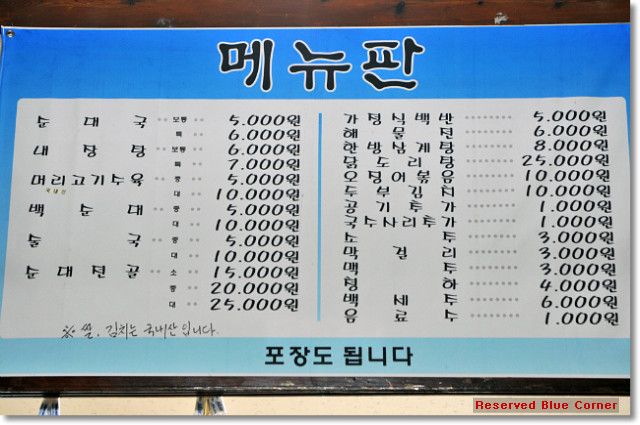 메뉴판
순대국 보통 5.000원
특 6.000원
내장탕 보통 6.000원
특 7.000원
머리고기수육 중 5.000원
국내산 대 10.000원
백순대 중 5.000원
대 10.000원
술국 중 5.000원
대 10.000원
순대전골 소 15.000원
중 20.000원
대 25.000원
※ 쌀, 김치는 국내산 입니다.
가정식백반 5.000원
해물전 6.000원
한방삼계탕 8.000원
닭도리탕 25.000원
오징어볶음 10.000원
두부김치 10.000원
공기추가 1.000원
국수사리추가 1.000원
소주 3.000원
막걸리 3.000원
맥주 3.000원
청하 4.000원
백세주 6.000원
음료수 1.000원
포장도 됩니다
Reserved Blue Corner